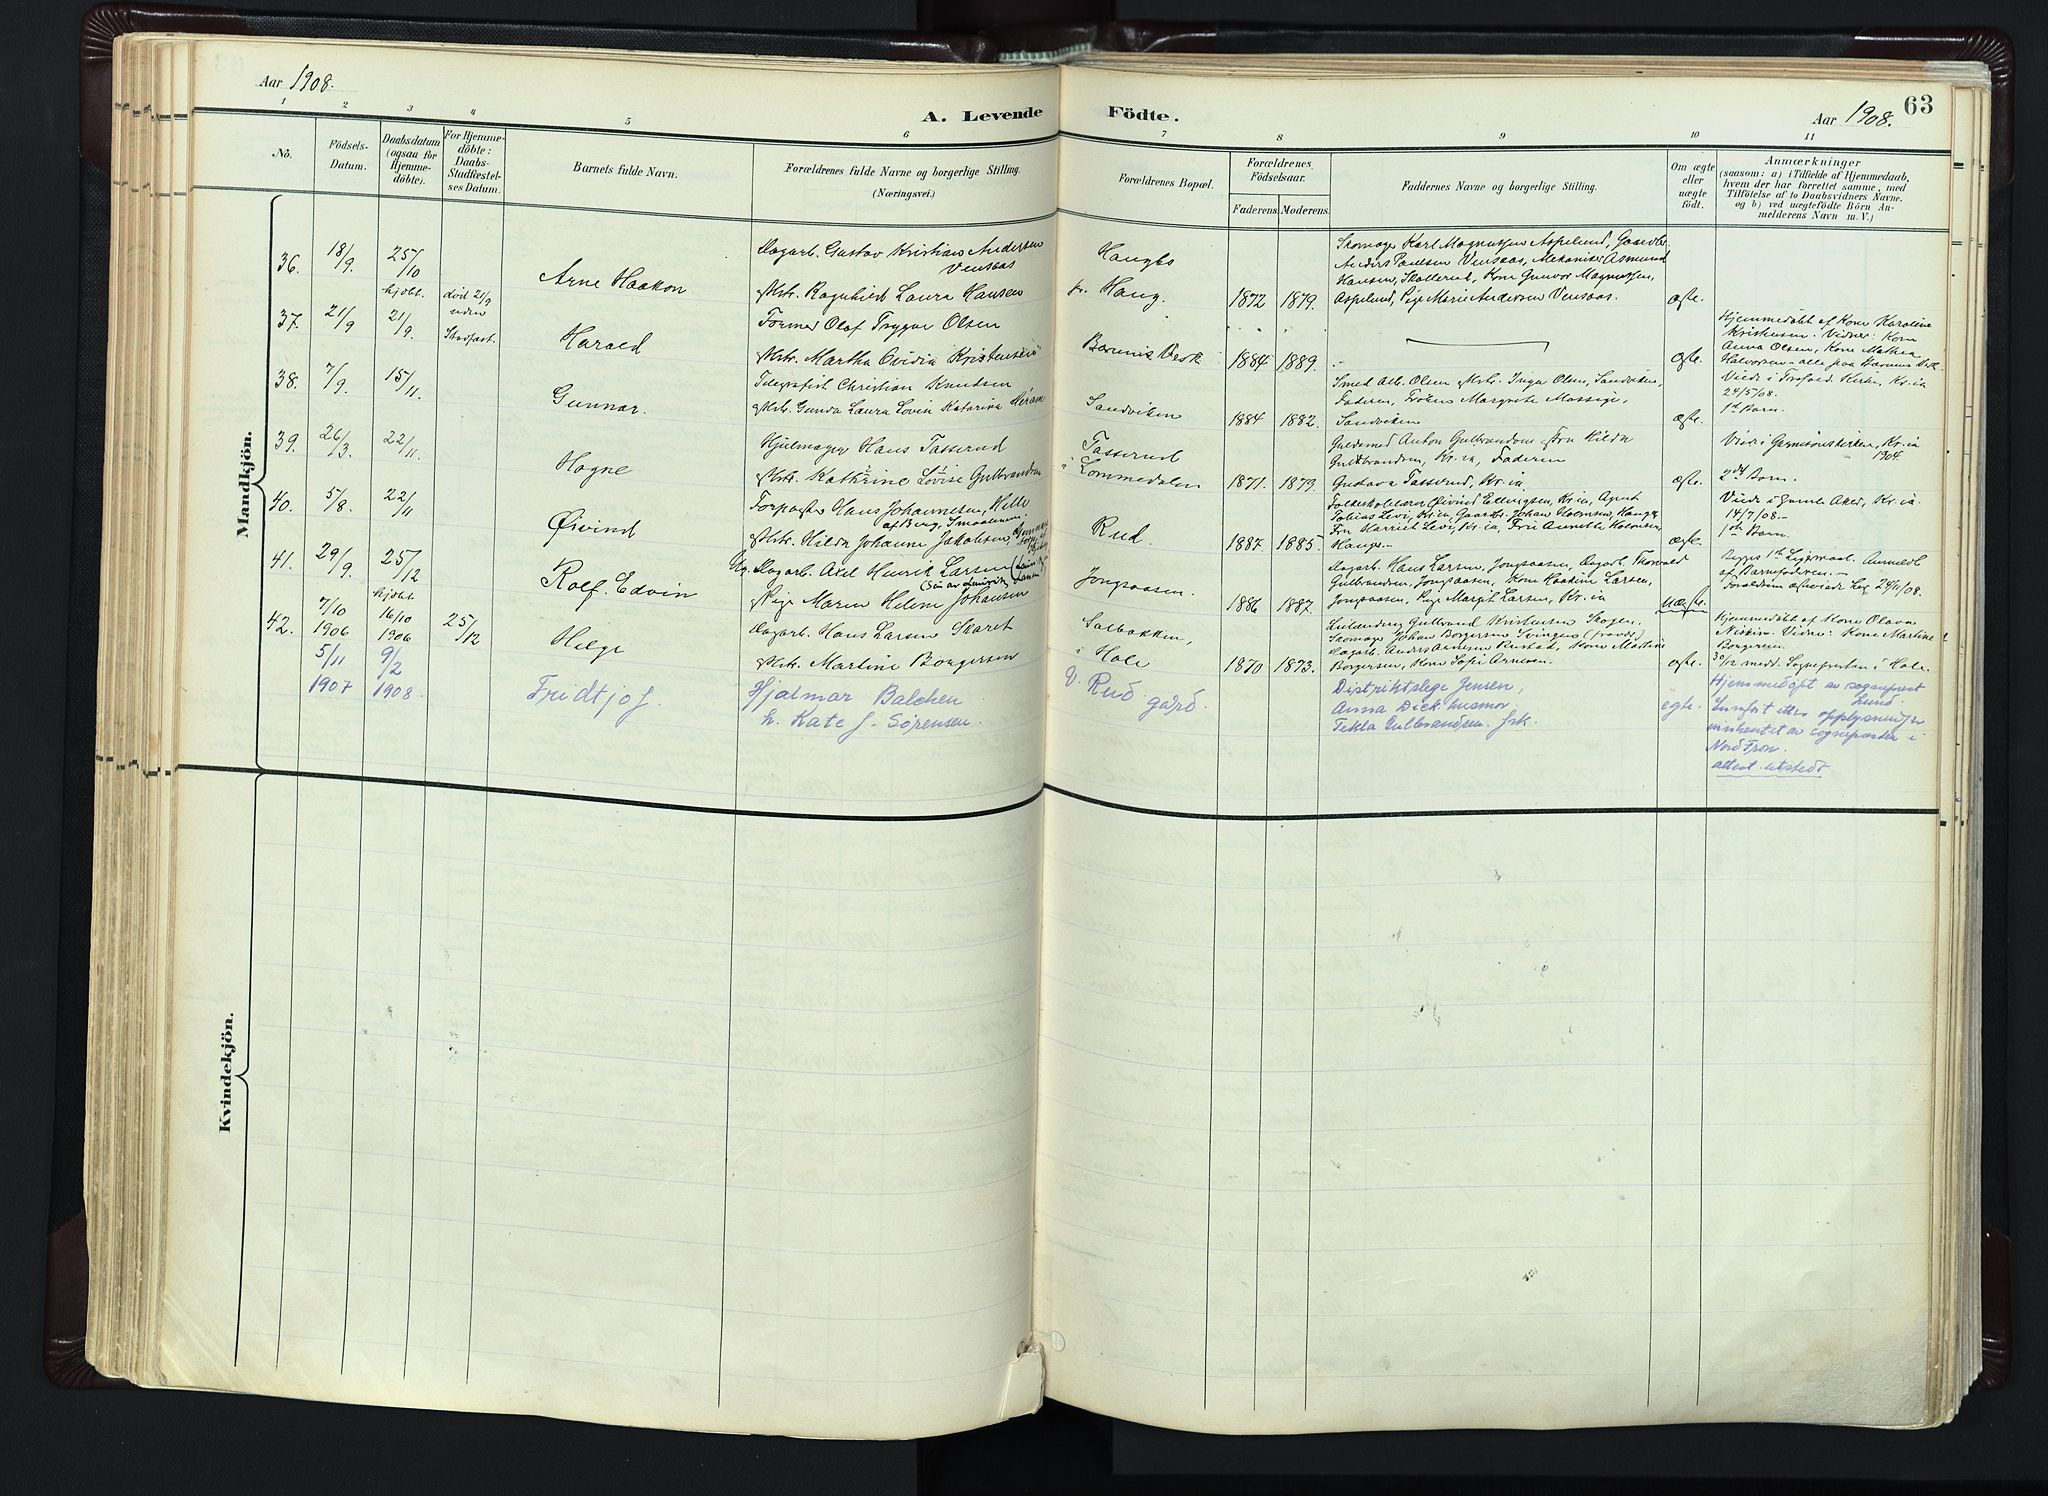 Aar 1908.
A. Levende Födte.
63
Aar 1908.
1 2 3 4 5 6 7 8 9 10 11
No.
Födsels-
Datum.
Daabsdatum
(ogsaa for
Hjemme-
döbte).
For Hjemme-
döbte:
Daabs-
Stadfæstel-
ses Datum.
Barnets fulde Navn.
Forældrenes fulde Navne og borgerlige Stilling.
(Næringsvei.)
Forældrenes Bopæl.
Forældrenes
Födselsaar.
Faderens. Moderens.
Faddernes Navne og borgerlige Stilling.
Om ægte
eller
uægte
födt.
Anmærkninger
(saasom: a) i Tilfælde af Hjemmedaab,
hvem der har forrettet samme, med
Tilföielse af to Daabsvidners Navne,
og b) ved uægtefödte Börn An-
melderens Navn m. V.)
Mandkjön.
36. 18/9. 25/10
Arne Haakon
Dagarb. Gustav Kristian Andersen
Vensaas
Hstr. Ragnhild Laura Hansen
Haugbs
pr. Haug.
1872 1879.
Skomager Karl Magnussen Aspelund, Gaardbr.
Anders Paulsen Vensaas, Mekaniker Asmund
Hansen, Skollerud, Kone Gunvor Magnussen,
Aspelund, Pige Marie Andersen Vensaas.
ægte.
37. 21/9 hjdbt. 21/9. död 21/9
uden
Stadfæst.
Harald
Former Olaf Trygve Olsen
Hstr. Martha Ovidia Kristensen
Bærums Verk
1884 1889.
ægte.
Hjemmedöbt af Kone Karoline
Kristensen. Vidner: Kone
Anna Olsen, Kone Mathea
Halvorsen - alle paa Bærums Verk.
38. 7/9. 15/11.
Gunnar.
Telegrafist Christian Knudsen
Hstr. Gunda Laura Lovise Katarina
Sandviken
1884 1882.
Smed Alb. Olsen Hstr. Inga Olsen, Sandviken,
Faderen, Fröken Margrete
Sandviken
ægte.
Viede i Trefold. Kirke, Kr.ia
24/5/08.
1ste Barn.
39. 26/3. 22/11.
Hogne
Hjulmager Hans Tasserud
Hstr. Kathrine Lovise Gulbrandsen
Tasserud
i Lommedalen
1871. 1879.
Guldsmed Anton Gulbrandsen Fru Hilda
Gulbrandsen, Kr.ia, Faderen
Gustava Tasserud, Kr.ia
ægte.
Viede i Garnisonskirken, Kr.ia
1904.
2det Barn.
40. 5/8. 22/11
Øivind
Forpagter Hans Johannesen, Helle
af Berg, Smaalenene
Hstr. Hilda Johanne Jakobsen,
Rud.
1887 1885.
Folkeskolelærer Øivind Ellingsen, Kr.ia, Agent
Tobias Levi, Kr.ia, Gaardbr. Johan Holmsen, Hauger,
Fru Harriet Levi, Kr.ia, Fru Annette Holmsen,
Hauger.-
ægte.
Viede i Gamle Aker, Kr.ia.
14/7/08.-
1ste Barn.
41. 29/9. 25/12
Rolf Edvin
Ug. Dagarb. Axel Henrik Larsen
Pige Maren Helene Johansen
Jongsaasen.
1886 1887.
Dagarb. Hans Larsen, Jongsaasen, Dagarb. Thorvald
Gulbrandsen, Jongsaasen, Kone Hoakine Larsen,
Jongsaasen, Pige Margit Larsen, Kr.ia
uægte.
Begges 1ste Leiermaal. Anmeldt
af Barnefaderen.-
Forældrene ægteviede her 29/11/08.
42. 7/10
1906 hjdbt
16/10
1906 25/12
Helge
Dagarb. Hans Larsen Skaret
Hstr. Martine Borgersen
Sølbakken,
i Hole
1870 1873.
Gulbrand Kristensen Skogen,
Skomager Johan Borgersen Svingen (fravd.)
Dagarb. Anders Arnesen Rustad, Kone Martine
Borgersen, Kone Sofie Arnesen.
ægte.
Hjemmedöbt af Kone Olava
Vidner: Kone Martine
Borgersen.
30/12 medt. Sognepresten i Hole.
5/11
1907 9/2
1908.
Fridtjof.
Hjalmar Balchen
h. Kate f. Sørensen.
V. Rud gård.
Distriktslege Jensen,
Anna Dick husmor
Tekla Gulbrandsen. frk.
egte.
Hjemmedøpt av sogneprest
Lund.
Innført etter opplysninger
innhentet av sogneprest i
Nord Fron.
attest utstedt
Kvindekjön.